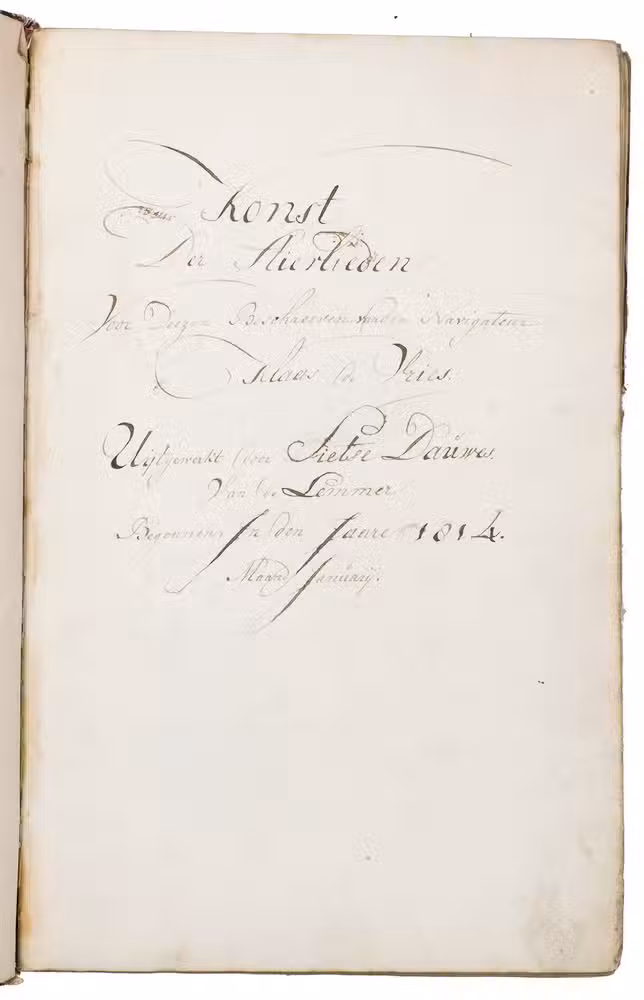 Konst
Der Stierlieden
Voor Deezen Beschreeven van den Navigateur
Klaas de Vries.
Uijtgewerkt door Sietse Dauwes.
Van de Lemmer
Begonnen In den Jaare 1814.
Maand Januarij.